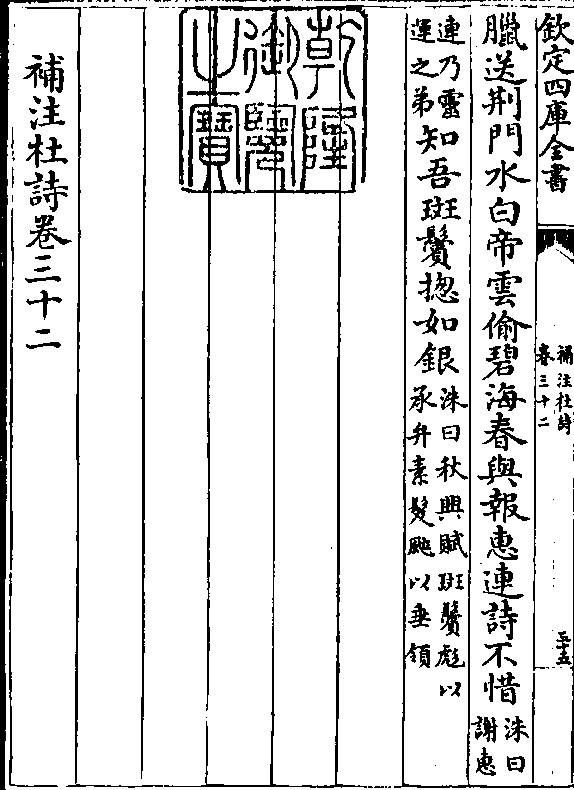 欽定四庫全書
補注杜詩
卷三十二
三十五
臘送荆門水白帝雲偷碧海春與報惠連詩不惜
洙曰
謝惠
連乃靈
運之弟
知吾斑鬢揔如銀
洙曰秋興賦斑鬢彪以
承弁素髮颯以垂領
乾隆
御覽
之寶
補注杜詩卷三十二